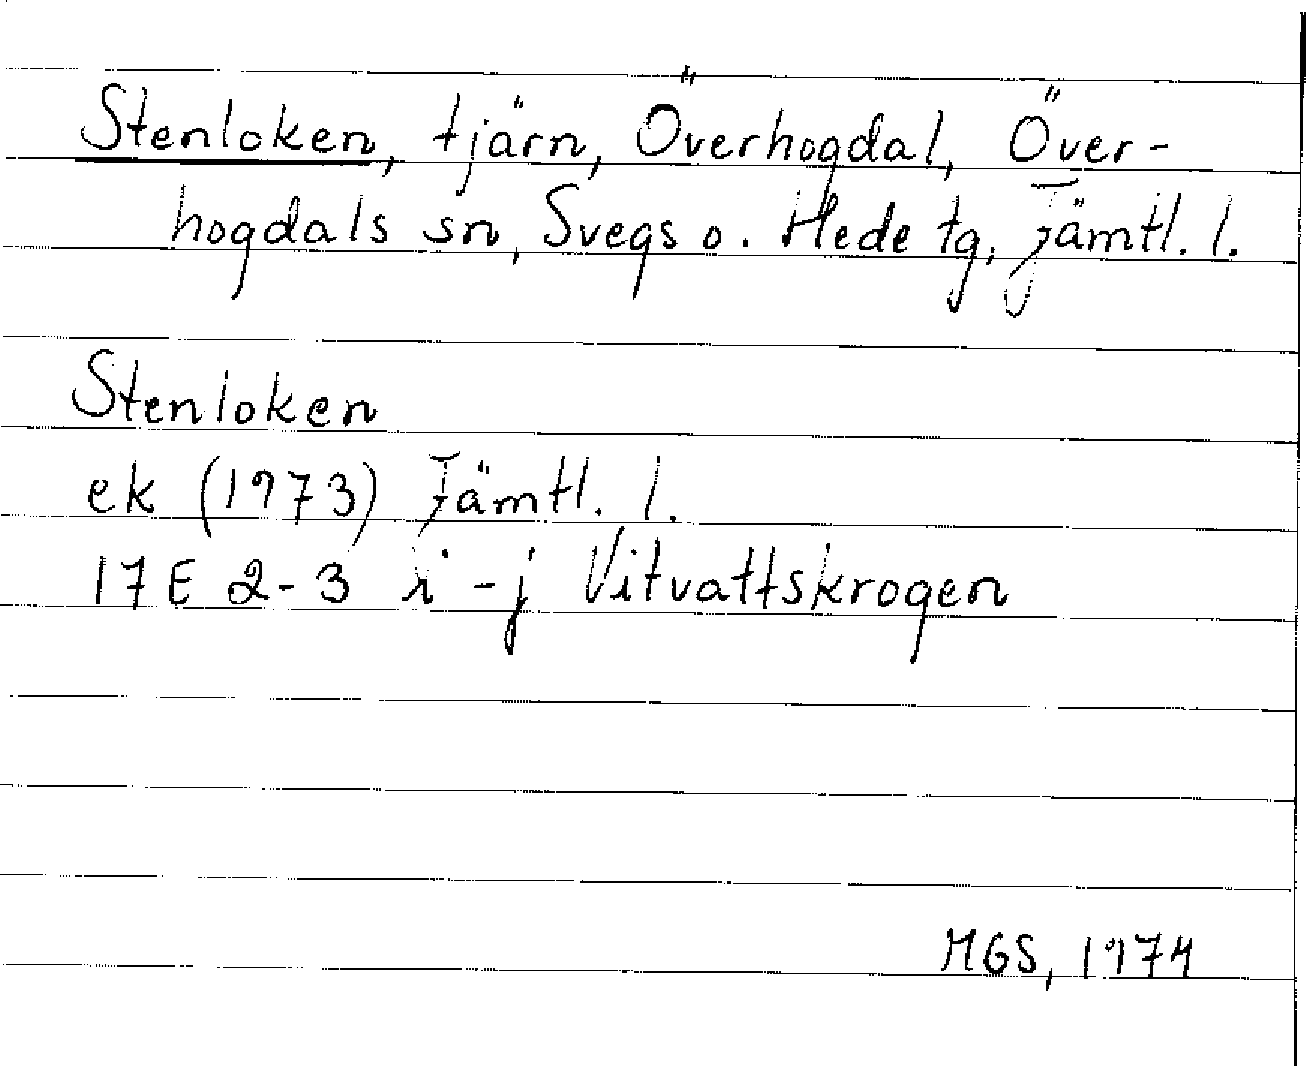 Stenloken, tjärn, Överhogdal, Över-
hogdals sn, Svegs o. Hede tg, Jämtl. l.
Stenloken
ek (1973) Jämtl. l.
17E 2-3 i-j Vitvattskrogen
MGS, 1974